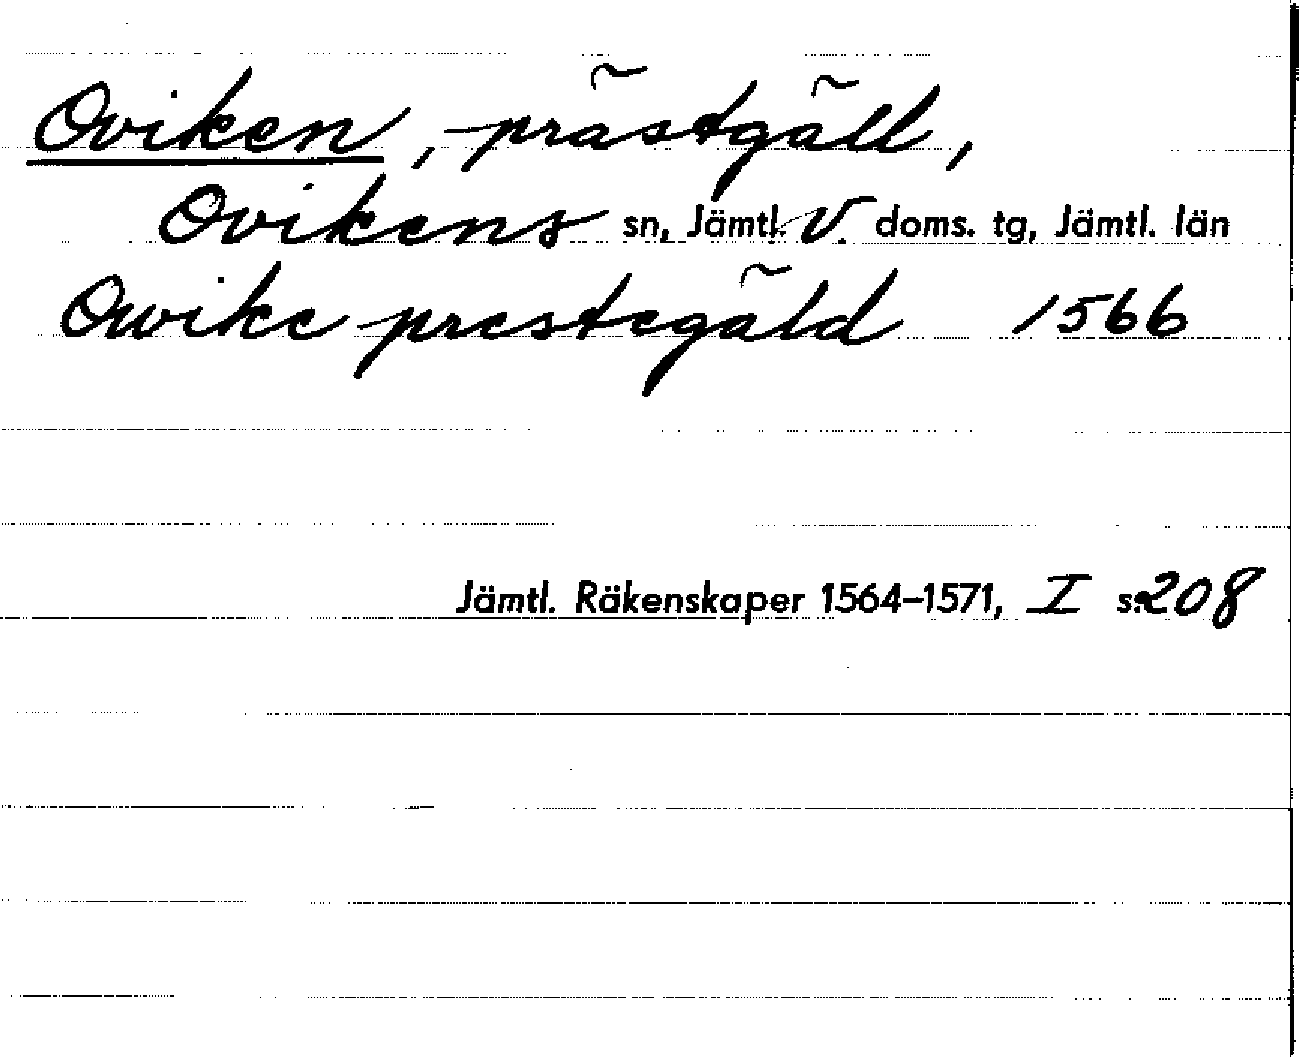 Oviken, prästgäll,
Ovikens sn, Jämtl. V. doms. tg, Jämtl. län
Owike prestegäld 1566
Jämtl. Räkenskaper 1564–1571, I s. 208